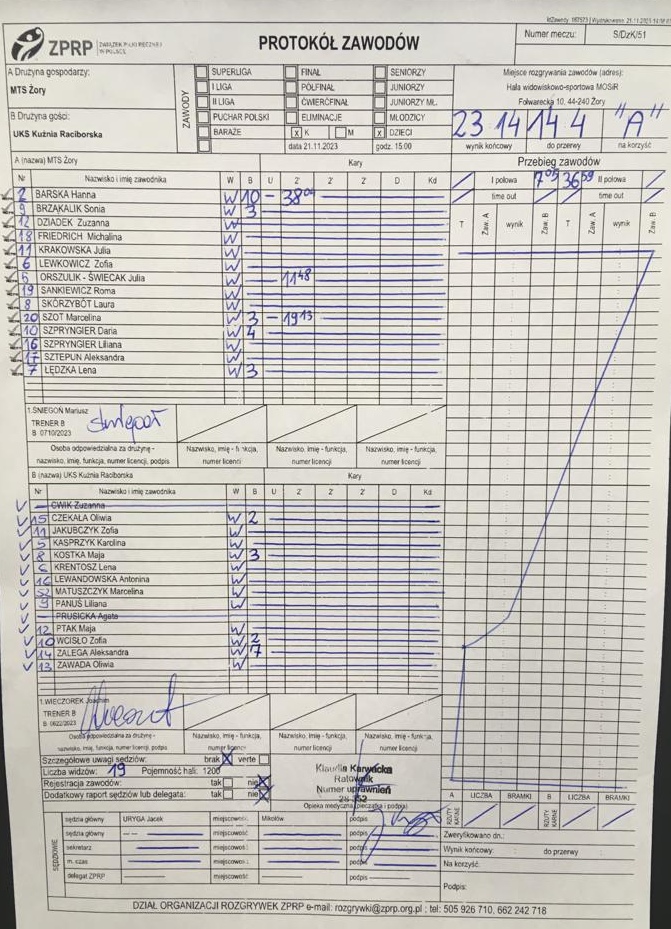 ZPRP ZWIĄZEK PIŁKI RĘCZNEJ W POLSCE
PROTOKÓŁ ZAWODÓW
Numer meczu: S/DzK/51
A Drużyna gospodarzy:
MTS Żory
B Drużyna gości:
UKS Kuźnia Raciborska
ZAWODY
SUPERLIGA FINAŁ SENIORZY
I LIGA PÓŁFINAŁ JUNIORZY
II LIGA ĆWIERĆFINAŁ JUNIORZY MŁ.
PUCHAR POLSKI ELIMINACJE MŁODZICY
BARAŻE X K M X DZIECI
data 21.11.2023 godz. 15:00
Miejsce rozgrywania zawodów (adres):
Hala widowiskowo-sportowa MOSiR
Folwarecka 10, 44-240 Żory
23 14 14 4 "A"
wynik końcowy do przerwy na korzyść
A (nazwa) MTS Żory Kary Przebieg zawodów
Nr Nazwisko i imię zawodnika W B U 2' 2' 2' D Kd
I połowa 7 05 36 59 II połowa
time out time out
T Zaw. A wynik Zaw. B T Zaw. A wynik Zaw. B
2 BARSKA Hanna W 10 - 38 04
9 BRZĄKALIK Sonia W 3
12 DZIADEK Zuzanna W
18 FRIEDRICH Michalina W
11 KRAKOWSKA Julia W
6 LEWKOWICZ Zofia W
5 ORSZULIK - ŚWIECAK Julia W 11 48
19 SANKIEWICZ Roma W
8 SKÓRZYBÓT Laura W
20 SZOT Marcelina W 3 - 19 13
10 SZPRYNGIER Daria W 4
16 SZPRYNGIER Liliana W
17 SZTEPUN Aleksandra W
7 ŁĘDZKA Lena W 3
1.ŚNIEGOŃ Mariusz
TRENER B
B 0710/2023
Osoba odpowiedzialna za drużynę - nazwisko, imię, funkcja, numer licencji, podpis
Nazwisko, imię - funkcja, numer licencji
Nazwisko, imię - funkcja, numer licencji
Nazwisko, imię - funkcja, numer licencji
B (nazwa) UKS Kuźnia Raciborska Kary
Nr Nazwisko i imię zawodnika W B U 2' 2' 2' D Kd
CWIK Zuzanna
15 CZEKAŁA Oliwia W 2
11 JAKUBCZYK Zofia W
5 KASPRZYK Karolina W
8 KOSTKA Maja W 3
6 KRENTOSZ Lena W
16 LEWANDOWSKA Antonina W
52 MATUSZCZYK Marcelina W
9 PANUŚ Liliana W
PRUSICKA Agata
12 PTAK Maja W
10 WCISŁO Zofia W 2
14 ZALEGA Aleksandra W 7
13 ZAWADA Oliwia W
1.WIECZOREK Joachim
TRENER B
B 0822/2023
Osoba odpowiedzialna za drużynę - nazwisko, imię, funkcja, numer licencji, podpis
Nazwisko, imię - funkcja, numer licencji
Nazwisko, imię - funkcja, numer licencji
Nazwisko, imię - funkcja, numer licencji
Szczegółowe uwagi sędziów: brak X verte
Liczba widzów: 19 Pojemność hali: 1200
Rejestracja zawodów: tak nie X
Dodatkowy raport sędziów lub delegata: tak nie X
Klaudia Karwacka
Ratownik
Numer uprawnień
Opieka medyczna (pieczątka i podpis)
A LICZBA BRAMKI B LICZBA BRAMKI
RZUTY KARNE RZUTY KARNE
SĘDZIOWIE
sędzia główny URYGA Jacek miejscowość Mikołów podpis
sędzia główny miejscowość podpis
sekretarz miejscowość podpis
m. czas miejscowość podpis
delegat ZPRP miejscowość podpis
Zweryfikowano dn.:
Wynik końcowy: do przerwy
Na korzyść:
Podpis:
DZIAŁ ORGANIZACJI ROZGRYWEK ZPRP e-mail: rozgrywki@zprp.org.pl ; tel: 505 926 710, 662 242 718